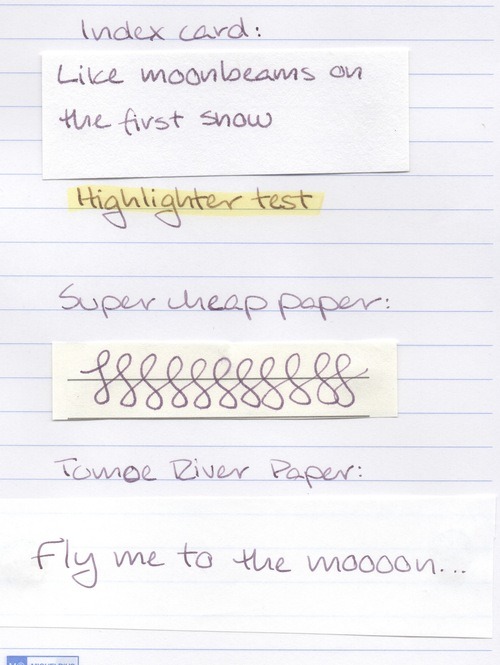 Index card:
Like moonbeams on
the first snow
Highlighter test
Super cheap paper:
Tomoe River Paper:
Fly me to the moooon...